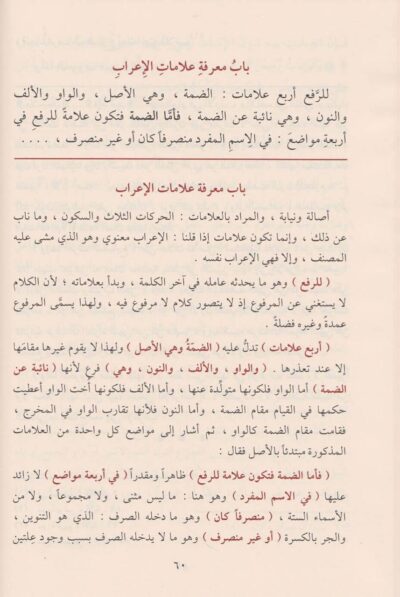 بابُ معرفةِ علاماتِ الإعرابِ
للرَّفع أربع علامات : الضمة ، وهي الأصل ، والواو والألف
والنون ، وهي نائبة عن الضمة ، فأمَّا الضمة فتكون علامةً للرفعِ في
أربعةِ مواضعَ : في الاِسمِ المفرد منصرفاً كان أو غير منصرف ، . . . .
باب معرفة علامات الإعراب
أصالة ونيابة ، والمراد بالعلامات : الحركات الثلاث والسكون ، وما ناب
عن ذلك ، وإنما تكون علامات إذا قلنا : الإعراب معنوي وهو الذي مشى عليه
المصنف ، وإلا فهي الإعراب نفسه .
( للرفع ) وهو ما يحدثه عامله في آخر الكلمة ، وبدأ بعلاماته ؛ لأن الكلام
لا يستغني عن المرفوع إذ لا يتصور كلام لا مرفوع فيه ، ولهذا يسمَّى المرفوع
عمدةً وغيره فضلةً .
( أربع علامات ) تدلُّ عليه ( الضمَّةُ وهي الأصل ) ولهذا لا يقوم غيرها مقامَها
إلا عند تعذرها . ( والواو ، والألف ، والنون ، وهي ) فرع لأنها ( نائبة عن
الضمة ) أما الواو فلكونها متولِّدة عنها ، وأما الألف فلكونها أخت الواو أعطيت
حكمها في القيام مقام الضمة ، وأما النون فلأنها تقارب الواو في المخرج ،
فقامت مقام الضمة كالواو ، ثم أشار إلى مواضع كل واحدة من العلامات
المذكورة مبتدئاً بالأصل فقال :
( فأما الضمة فتكون علامة للرفع ) ظاهراً ومقدراً ( في أربعة مواضع ) لا زائد
عليها ( في الاسم المفرد ) وهو هنا : ما ليس مثنى ، ولا مجموعاً ، ولا من
الأسماء الستة ، ( منصرفاً كان ) وهو ما دخله الصرف : الذي هو التنوين ،
والجر بالكسرة ( أو غير منصرف ) وهو ما لا يدخله الصرف بسبب وجود عِلتين
٦٠